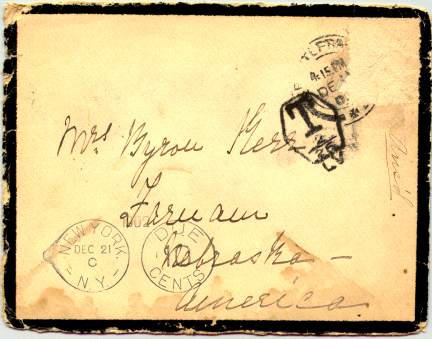 4.15 PM
DE
T
Mrs Byron
Farnam
Nebraska -
America
NEW YORK.
DEC 21
C
N.Y.
DUE
CENTS